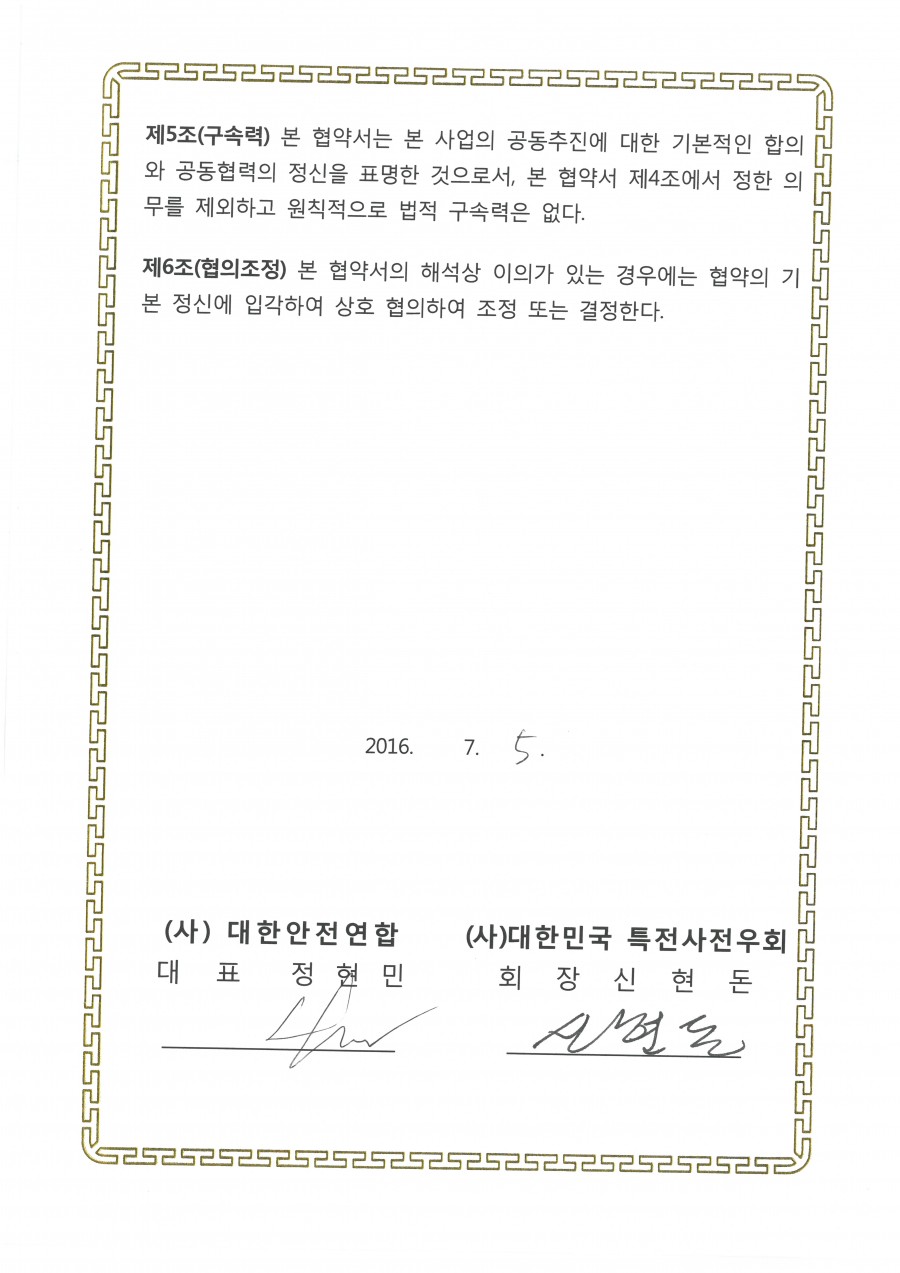 제5조(구속력) 본 협약서는 본 사업의 공동추진에 대한 기본적인 합의
와 공동협력의 정신을 표명한 것으로서, 본 협약서 제4조에서 정한 의
무를 제외하고 원칙적으로 법적 구속력은 없다.
제6조(협의조정) 본 협약서의 해석상 이의가 있는 경우에는 협약의 기
본 정신에 입각하여 상호 협의하여 조정 또는 결정한다.
2016. 7. 5.
(사) 대한안전연합
대 표 정 현 민
(사)대한민국 특전사전우회
회 장 신 현 돈
신현돈